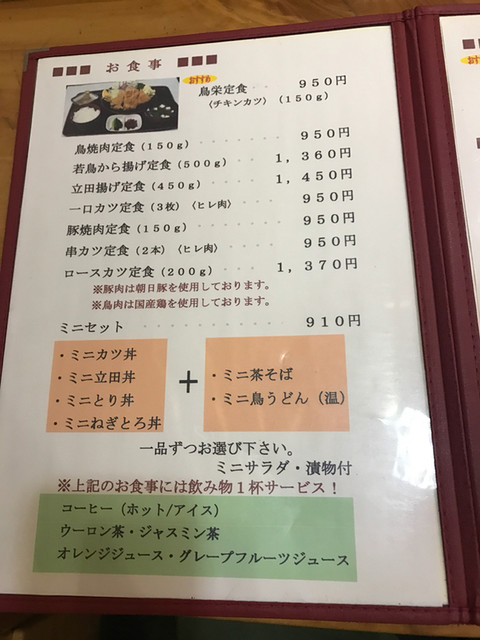 ■■■ お食事 ■■■
おすすめ
鳥栄定食 ‥‥ 950円
〈チキンカツ〉(150g)
鳥焼肉定食(150g) ‥‥‥‥ 950円
若鳥から揚げ定食(500g) ‥‥ 1,360円
立田揚げ定食(450g) ‥‥‥ 1,450円
一口カツ定食(3枚)〈ヒレ肉〉 ‥‥ 950円
豚焼肉定食(150g) ‥‥‥‥ 950円
串カツ定食(2本)〈ヒレ肉〉 ‥‥ 950円
ロースカツ定食(200g) ‥‥‥ 1,370円
※豚肉は朝日豚を使用しております。
※鳥肉は国産鶏を使用しております。
ミニセット ‥‥‥‥‥‥ 910円
・ミニカツ丼
・ミニ立田丼
・ミニとり丼
・ミニねぎとろ丼
+
・ミニ茶そば
・ミニ鳥うどん(温)
一品ずつお選び下さい。
ミニサラダ・漬物付
※上記のお食事には飲み物1杯サービス!
コーヒー(ホット/アイス)
ウーロン茶・ジャスミン茶
オレンジジュース・グレープフルーツジュース